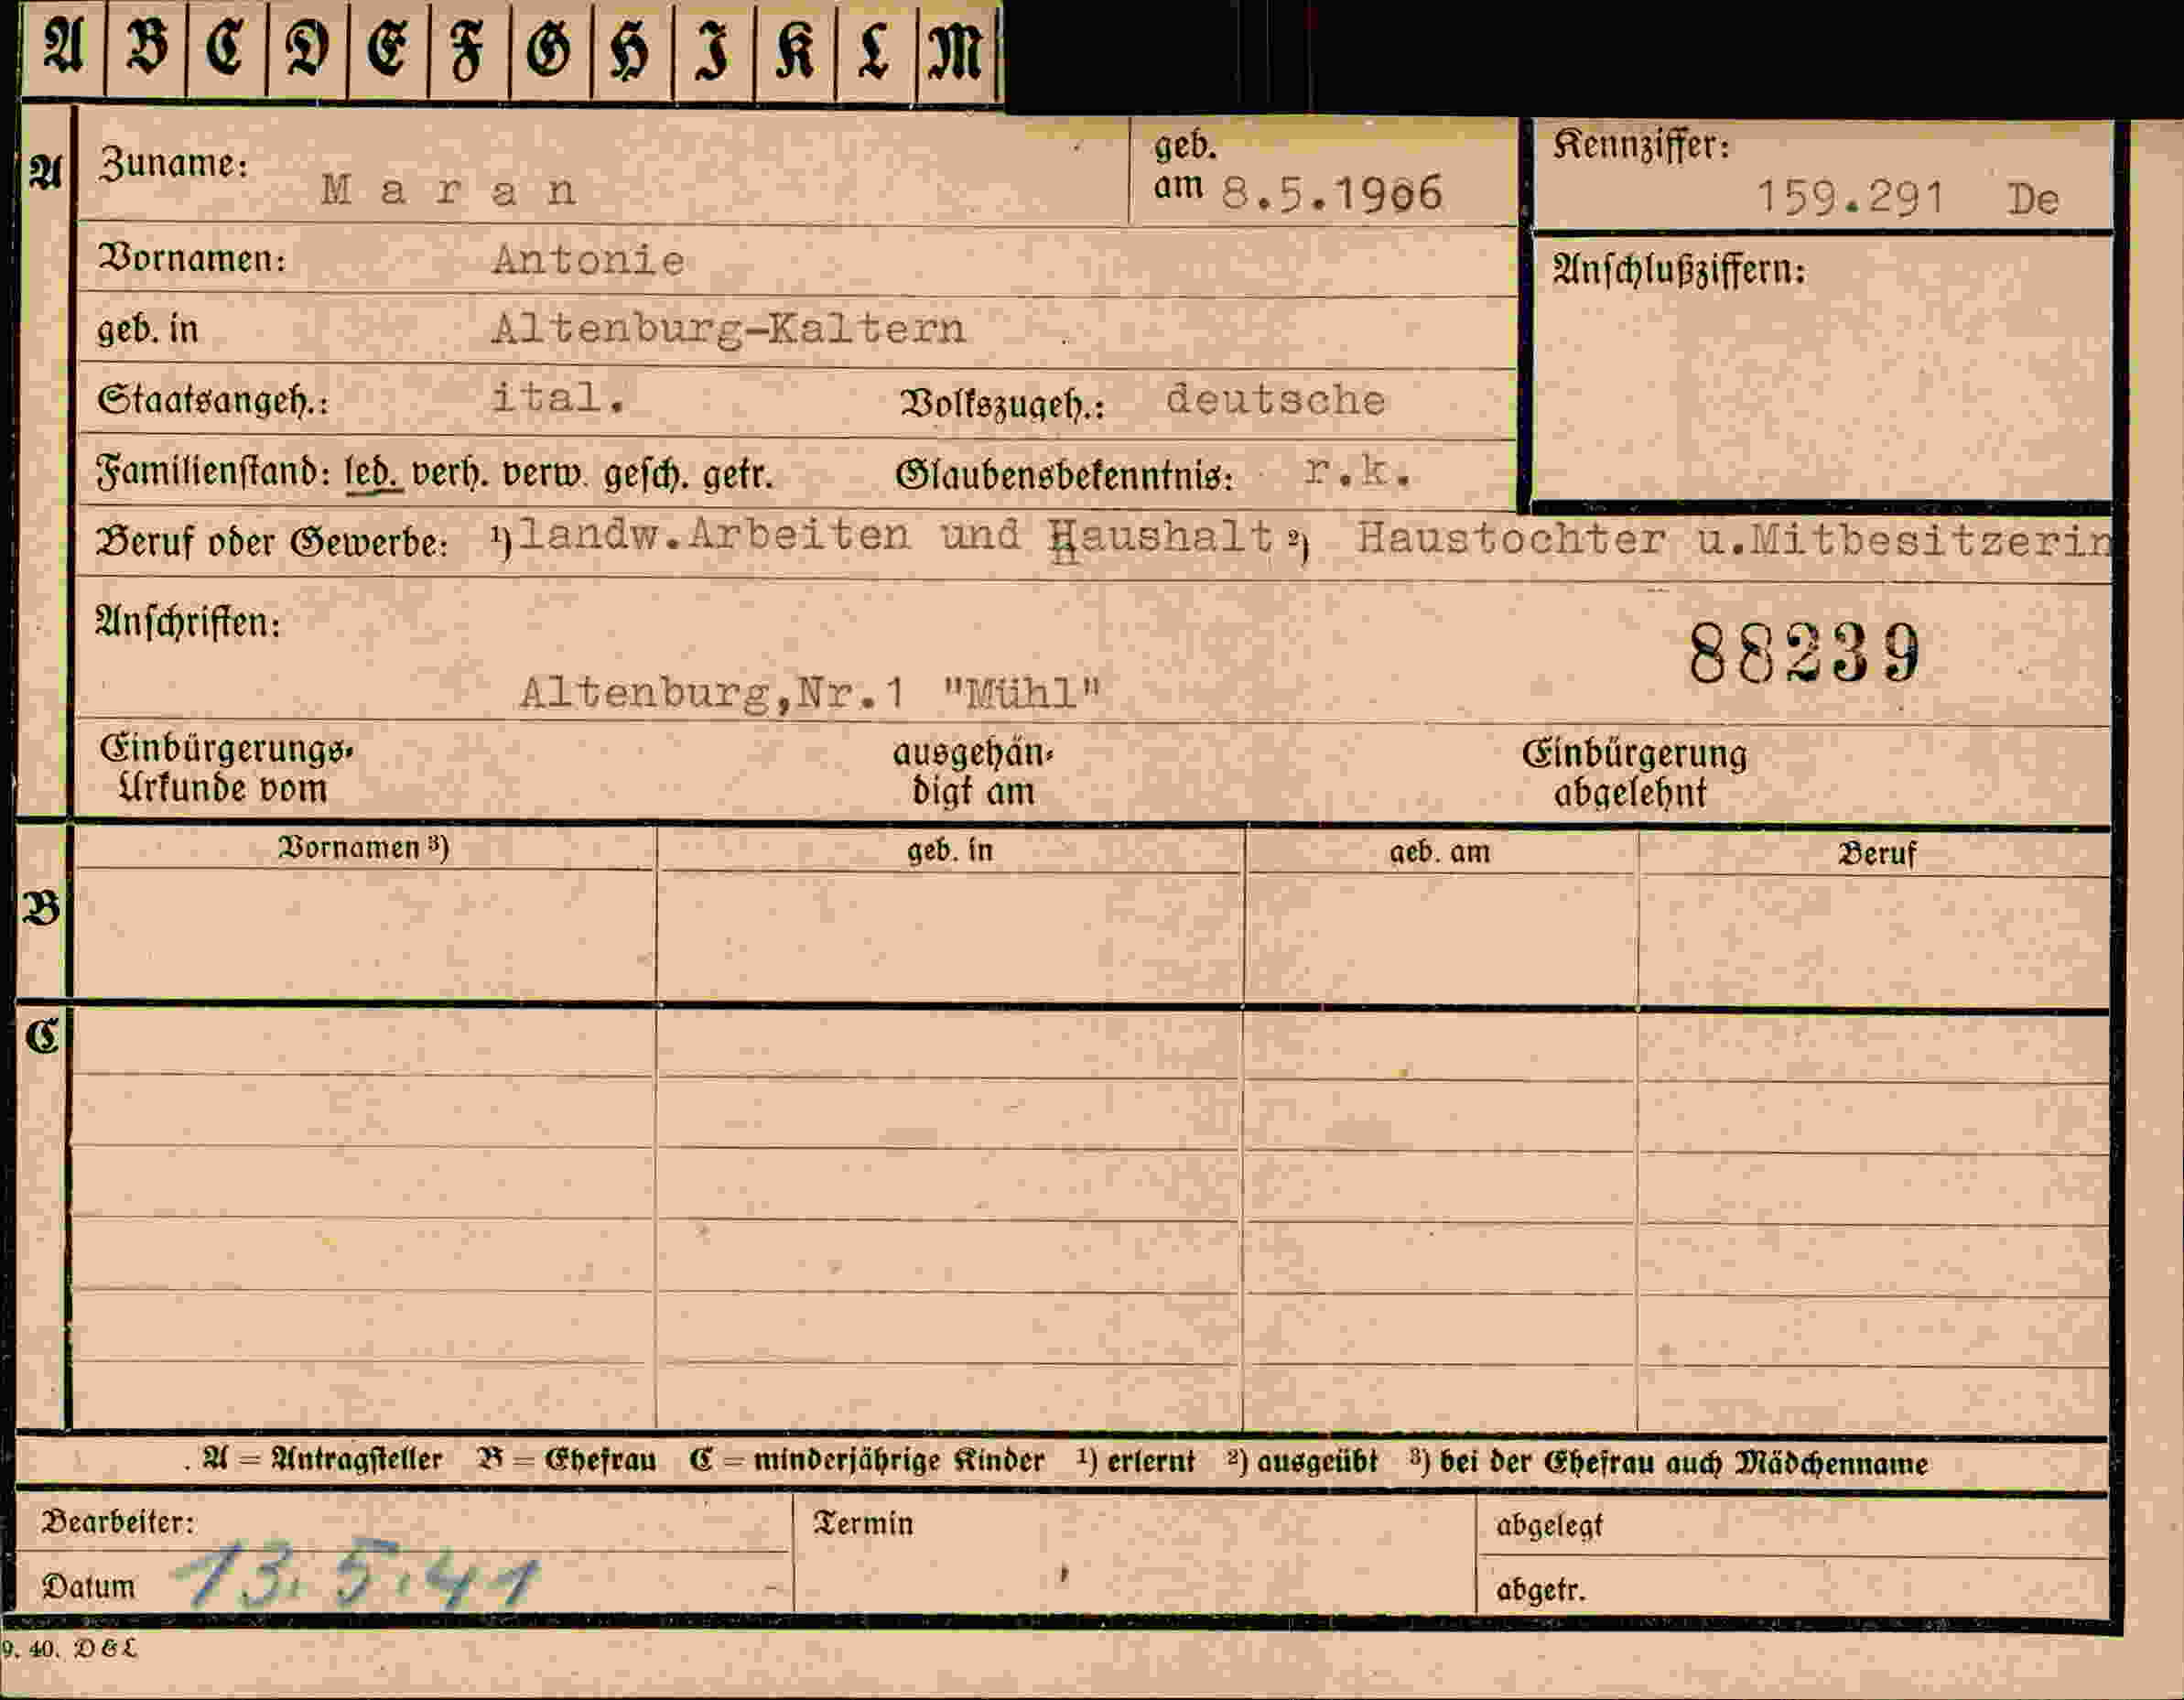 A B C D E F G H I K L M
A Zuname: Maran geb. am 8.5.1906 Kennziffer: 159.291 De
Vornamen: Antonie Anschlußziffern:
geb. in Altenburg-Kaltern
Staatsangeh.: ital. Volkszugeh.: deutsche
Familienstand: led. verh. verw. gesch. getr. Glaubensbekenntnis: r.k.
Beruf oder Gewerbe: ¹) landw.Arbeiten und Haushalt ²) Haustochter u.Mitbesitzerin
Anschriften: 88239
Altenburg,Nr.1 "Mühl"
Einbürgerungs- ausgehän- Einbürgerung
Urkunde vom digt am abgelehnt
Vornamen ³) geb. in geb. am Beruf
B
C
A = Antragsteller B = Ehefrau C = minderjährige Kinder ¹) erlernt ²) ausgeübt ³) bei der Ehefrau auch Mädchenname
Bearbeiter: Termin abgelegt
Datum 13.5.41 abgetr.
9. 40. D&L